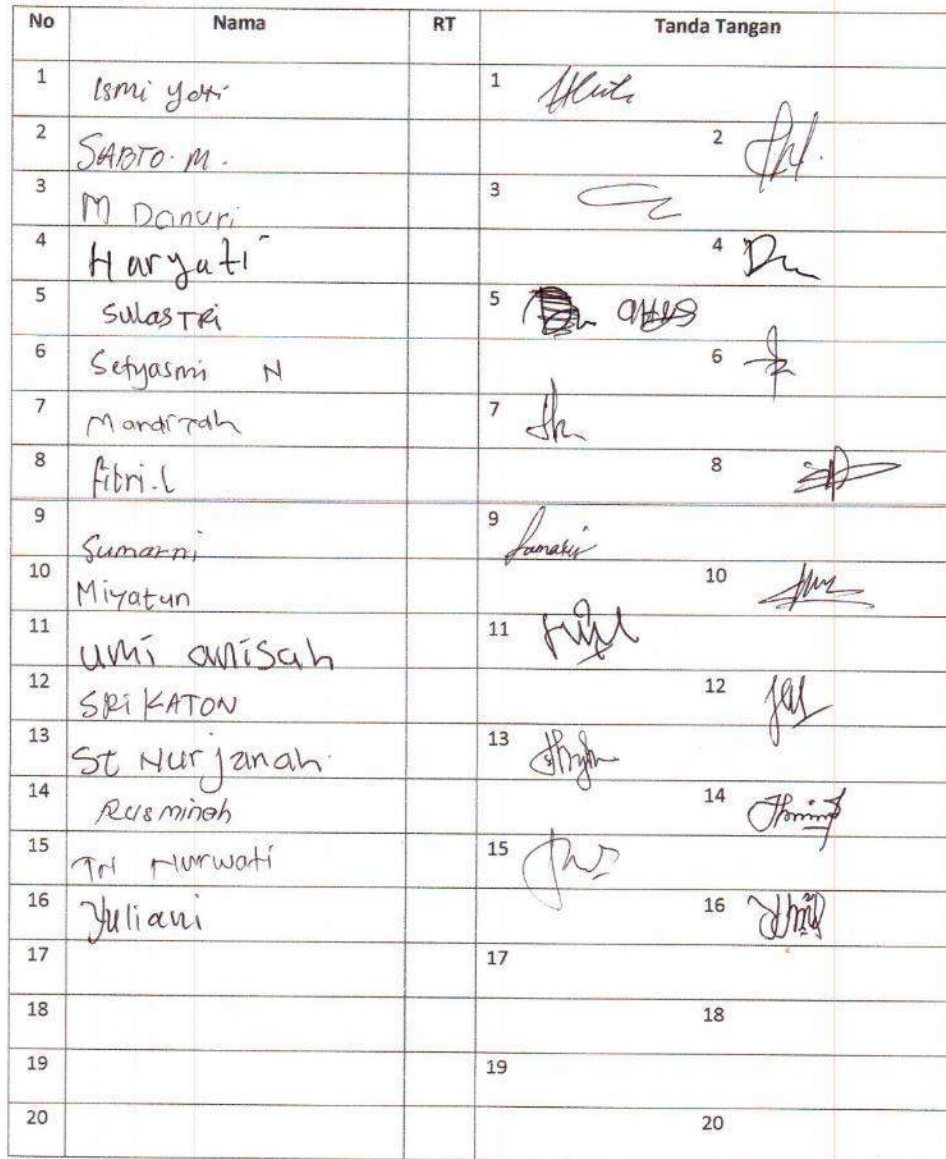 No Nama RT Tanda Tangan
1 Ismi Yati 1
2 SABTO. M. 2
3 M Danuri 3
4 Haryati 4
5 SulasTRi 5
6 Setyasmi N 6
7 7
8 fitri.L 8
9 Sumarni 9
10 Miyatun 10
11 umi anisah 11
12 SRi KATON 12
13 St Nurjanah. 13
14 Rusminah 14
15 Nurwati 15
16 Yuliani 16
17 17
18 18
19 19
20 20